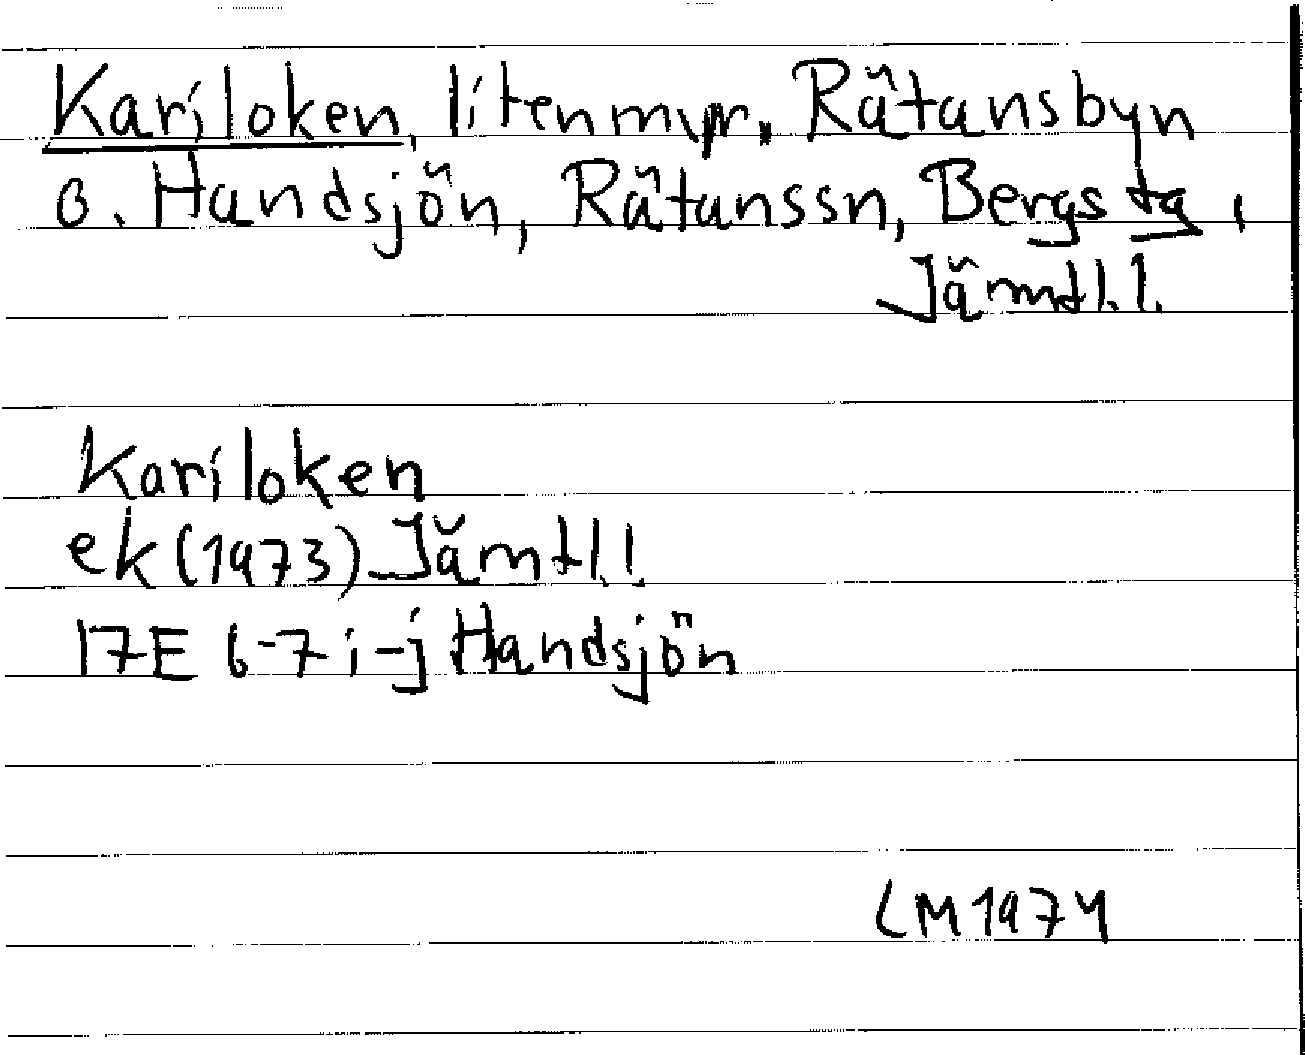 Kariloken, liten myr, Rätansbyn
o. Handsjön, Rätans sn, Bergs tg,
Jämtl. l.
Kariloken
ek (1973) Jämtl. l
17E 6-7 i-j Handsjön
LM 1974